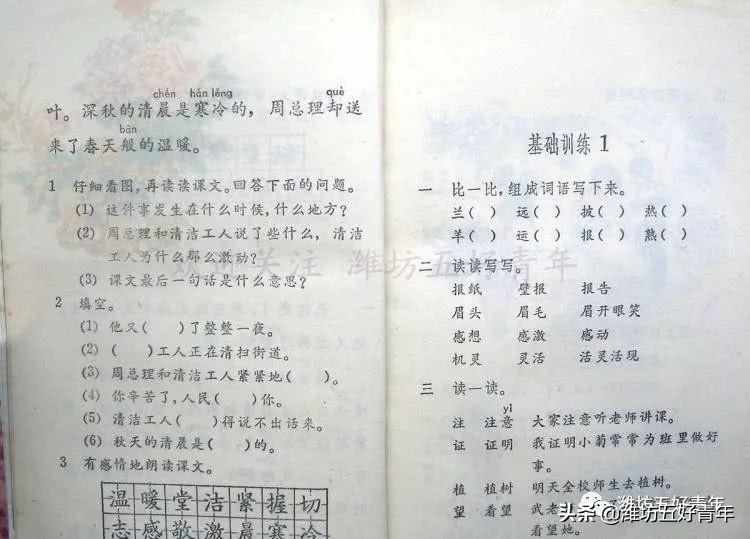 chén hán lěng què
叶。深秋的清晨是寒冷的，周总理却送
bān
来了春天般的温暖。
1 仔细看图，再读读课文。回答下面的问题。
(1) 这件事发生在什么时候，什么地方？
(2) 周总理和清洁工人说了些什么，清洁
工人为什么那么激动？
(3) 课文最后一句话是什么意思？
2 填空。
(1) 他又( )了整整一夜。
(2) ( )工人正在清扫街道。
(3) 周总理和清洁工人紧紧地( )。
(4) 你辛苦了，人民( )你。
(5) 清洁工人( )得说不出话来。
(6) 秋天的清晨是( )的。
3 有感情地朗读课文。
温暖堂洁紧握切
志感敬激晨寒冷
基础训练 1
一 比一比，组成词语写下来。
兰( ) 远( ) 披( ) 热( )
羊( ) 运( ) 报( ) 熟( )
二 读读写写。
报纸 壁报 报告
眉头 眉毛 眉开眼笑
感想 感激 感动
机灵 灵活 活灵活现
三 读一读。
yì
注 注意 大家注意听老师讲课。
证 证明 我证明小菊常常为班里做好
事。
植 植树 明天全校师生去植树。
望 看望 武老
看望她。
关注 潍坊五好青年
潍坊五好青年
头条 @潍坊五好青年